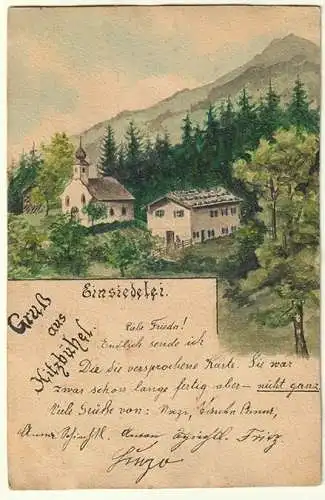 Einsiedelei.
Gruß
aus
Kitzbühel.
Liebe Frieda!
Endlich sende ich
Dir die versprochene Karte. Sie war
zwar schon lange fertig aber – nicht ganz
Viele Grüße von: Nazi,
Anna Schiechtl. Anton Fritz.
Hugo